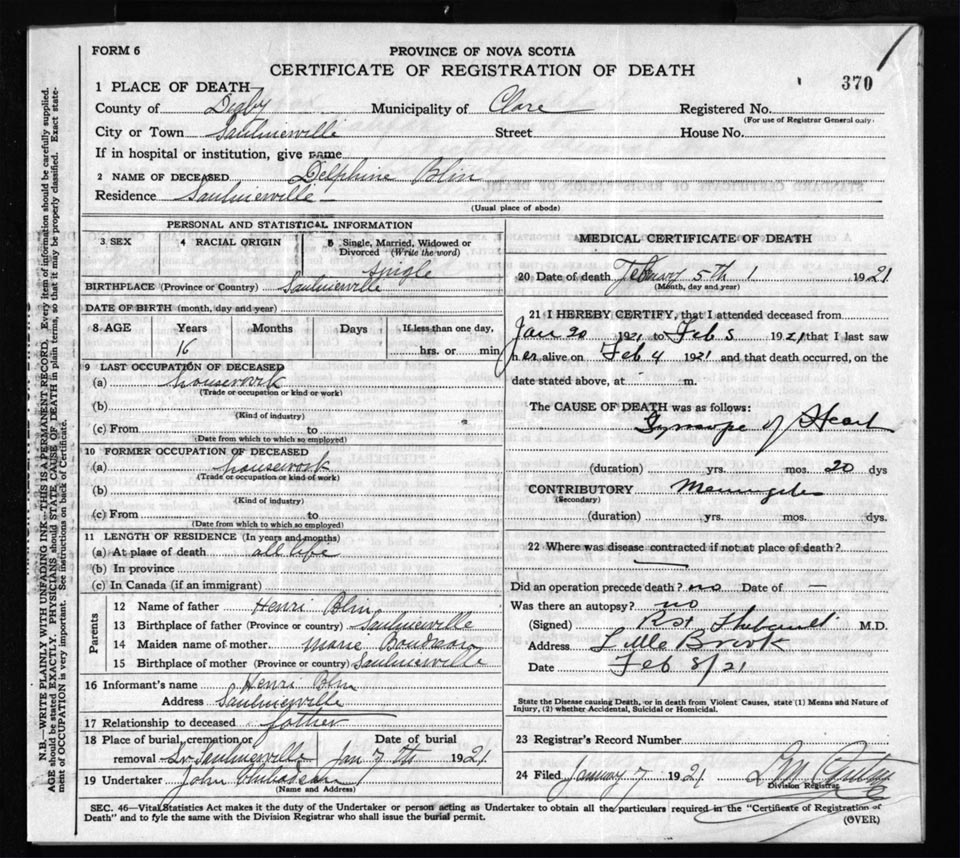 FORM 6
PROVINCE OF NOVA SCOTIA
CERTIFICATE OF REGISTRATION OF DEATH
370
1 PLACE OF DEATH
County of Digby Municipality of Clare Registered No.
(For use of Registrar General only)
City or Town Saulnierville Street House No.
If in hospital or institution, give name
2 NAME OF DECEASED Delphine Blin
Residence Saulnierville
(Usual place of abode)
PERSONAL AND STATISTICAL INFORMATION
3 SEX 4 RACIAL ORIGIN 5 Single, Married, Widowed or Divorced (Write the word)
Single
BIRTHPLACE (Province or Country) Saulnierville
DATE OF BIRTH (month, day and year)
8 AGE Years Months Days If less than one day,
16 hrs. or min
9 LAST OCCUPATION OF DECEASED
(a) housework
(Trade or occupation or kind or work)
(b)
(Kind of industry)
(c) From to
(Date from which to which so employed)
10 FORMER OCCUPATION OF DECEASED
(a) housework
(Trade or occupation or kind of work)
(b)
(Kind of industry)
(c) From to
(Date from which to which so employed)
11 LENGTH OF RESIDENCE (In years and months)
(a) At place of death all life
(b) In province
(c) In Canada (if an immigrant)
Parents
12 Name of father Henri Blin
13 Birthplace of father (Province or country) Saulnierville
14 Maiden name of mother Marie Boudreau
15 Birthplace of mother (Province or country) Saulnierville
16 Informant's name Henri Blin
Address Saulnierville
17 Relationship to deceased father
18 Place of burial, cremation or Date of burial
removal Saulnierville Jan 7th 1921
19 Undertaker John
(Name and Address)
MEDICAL CERTIFICATE OF DEATH
20 Date of death February 5th 1921
(Month, day and year)
21 I HEREBY CERTIFY, that I attended deceased from
Jan 20 1921 to Feb 5 1921 that I last saw
her alive on Feb 4 1921 and that death occurred, on the
date stated above, at m.
The CAUSE OF DEATH was as follows:
Syncope of Heart
(duration) yrs. mos. 20 dys
CONTRIBUTORY
(Secondary)
(duration) yrs. mos. dys.
22 Where was disease contracted if not at place of death?
—
Did an operation precede death? no Date of —
Was there an autopsy? no
(Signed) M.D.
Address Little Brook
Date Feb 8/21
State the Disease causing Death, or in death from Violent Causes, state (1) Means and Nature of Injury, (2) whether Accidental, Suicidal or Homicidal.
23 Registrar's Record Number
24 Filed January 7 1921
Division Registrar
SEC. 46—Vital Statistics Act makes it the duty of the Undertaker or person acting as Undertaker to obtain all the particulars required in the "Certificate of Registration of
Death" and to fyle the same with the Division Registrar who shall issue the burial permit.
(OVER)
N.B.—WRITE PLAINLY WITH UNFADING INK—THIS IS A PERMANENT RECORD. Every item of information should be carefully supplied.
AGE should be stated EXACTLY. PHYSICIANS should STATE CAUSE OF DEATH in plain terms, so that it may be properly classified. Exact state-
ment of OCCUPATION is very important. See instructions on back of Certificate.